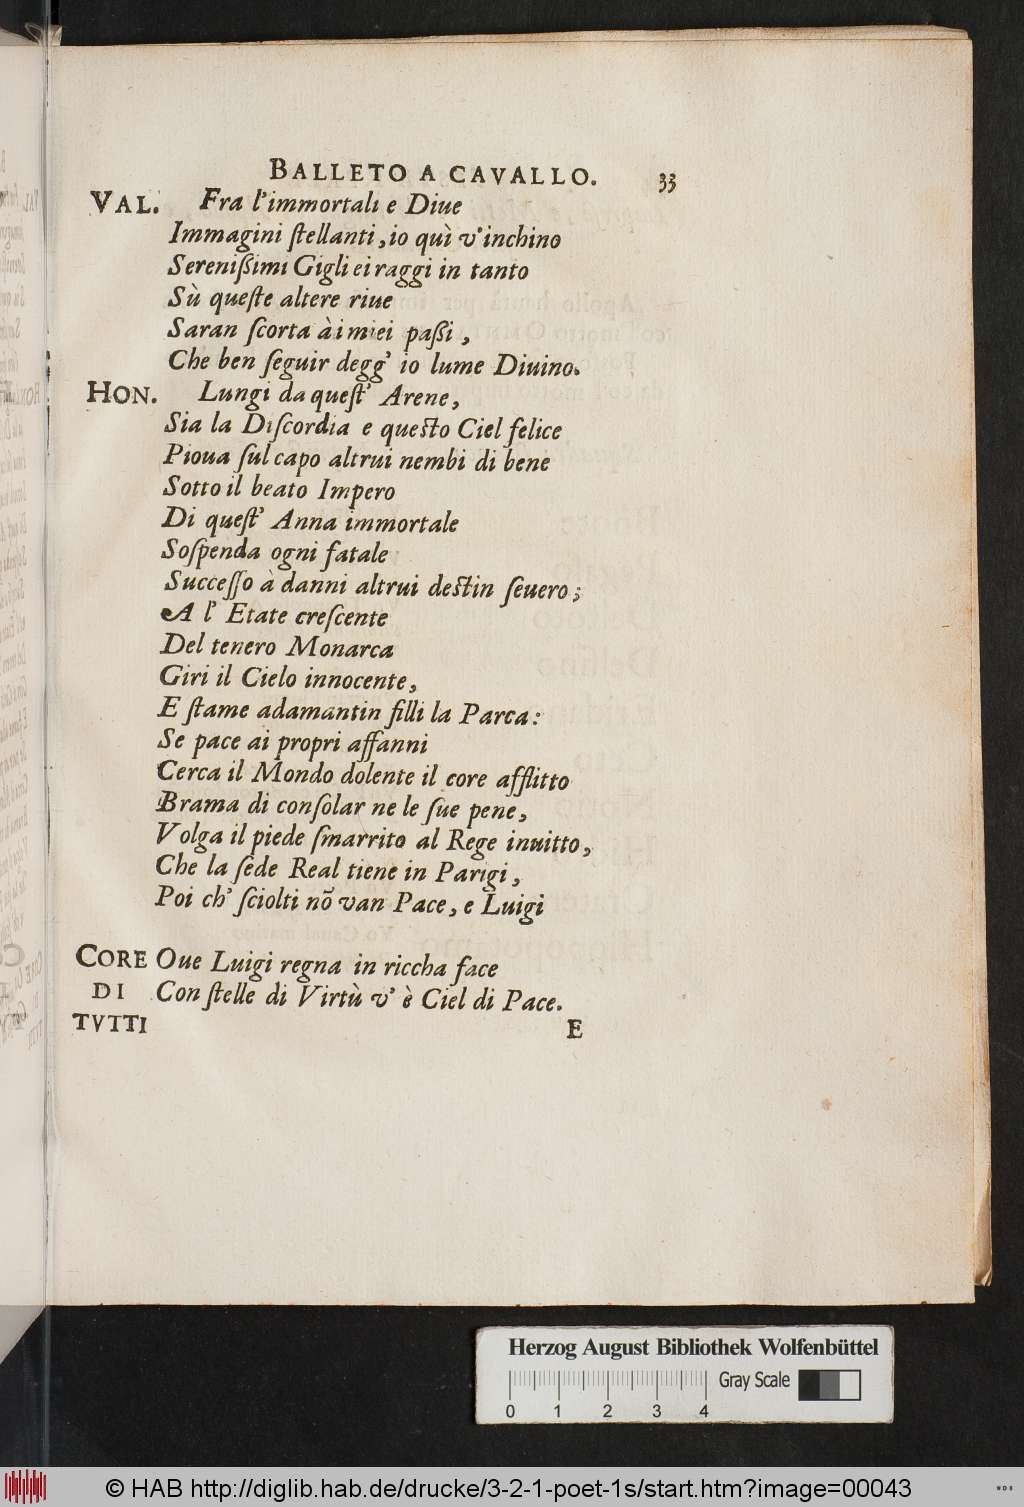 BALLETO A CAVALLO. 33
VAL. Fra l'immortali e Diue
Immagini ſtellanti, io quì v'inchino
Sereniſsimi Gigli ei raggi in tanto
Sù queſte altere riue
Saran ſcorta à i miei paſsi,
Che ben ſeguir degg' io lume Diuino.
HON. Lungi da queſt' Arene,
Sia la Diſcordia e queſto Ciel felice
Pioua ſul capo altrui nembi di bene
Sotto il beato Impero
Di queſt' Anna immortale
Soſpenda ogni fatale
Succeſſo à danni altrui deſtin ſeuero;
A l' Etate creſcente
Del tenero Monarca
Giri il Cielo innocente,
E ſtame adamantin filli la Parca:
Se pace ai propri affanni
Cerca il Mondo dolente il core afflitto
Brama di conſolar ne le ſue pene,
Volga il piede ſmarrito al Rege inuitto,
Che la ſede Real tiene in Parigi,
Poi ch' ſciolti nõ van Pace, e Luigi
CORE Oue Luigi regna in riccha face
DI Con ſtelle di Virtù v' è Ciel di Pace.
TVTTI E
Herzog August Bibliothek Wolfenbüttel
Gray Scale
0 1 2 3 4
© HAB http://diglib.hab.de/drucke/3-2-1-poet-1s/start.htm?image=00043